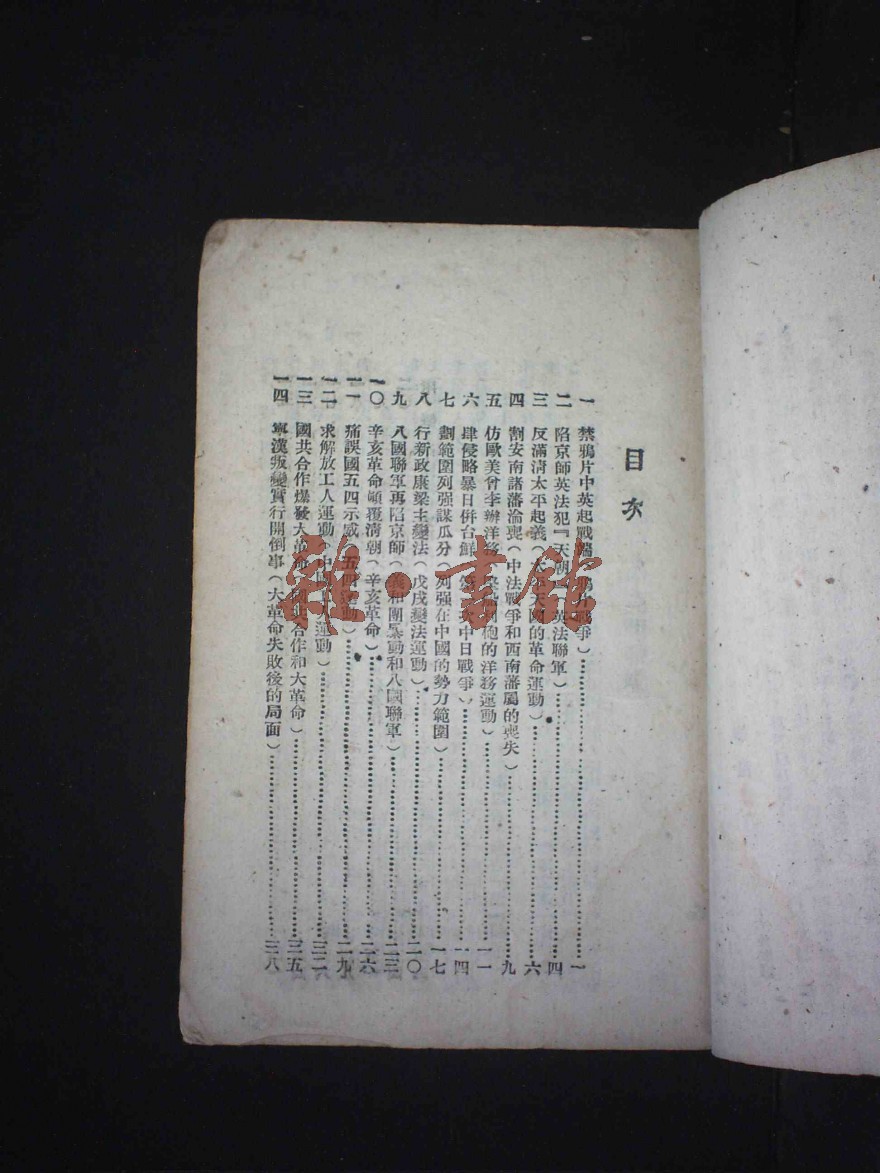 目次
一 禁鴉片中英起戰端(鴉片戰爭)……一
二 陷京師英法犯『天朝』(英法聯軍)……四
三 反滿淸太平起義(太平天國的革命運動)……六
四 割安南諸藩淪喪(中法戰爭和西南藩屬的喪失)……九
五 仿歐美曾李辦洋務(堅船利砲的洋務運動)……一一
六 肆侵略暴日併台鮮(第一次中日戰爭)……一四
七 劃範圍列强謀瓜分(列强在中國的勢力範圍)……一七
八 行新政康梁主變法(戊戌變法運動)……二〇
九 八國聯軍再陷京師(義和團暴動和八國聯軍)……二三
一〇 辛亥革命顚覆淸朝(辛亥革命)……二六
一一 痛誤國五四示威(五四運動)……二九
一二 求解放工人運動(中國工人運動)……三二
一三 國共合作爆發大革命(國共合作和大革命)……三五
一四 寧漢叛變實行開倒車(大革命失敗後的局面)……三八
雜·書館